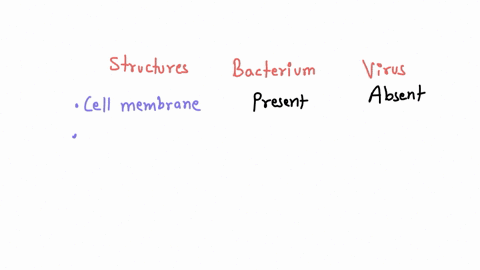 Structures Bacterium Virus
• Cell membrane Present Absent
•